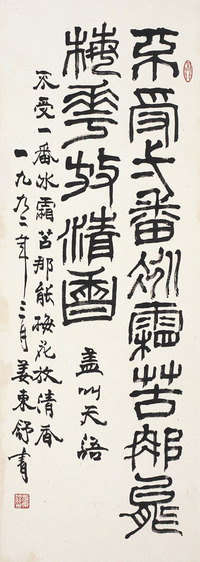 不受一番冰霜苦那能
梅花放清香
盖叫天语
不受一番冰霜苦那能梅花放清香
一九九二年三月姜东舒书